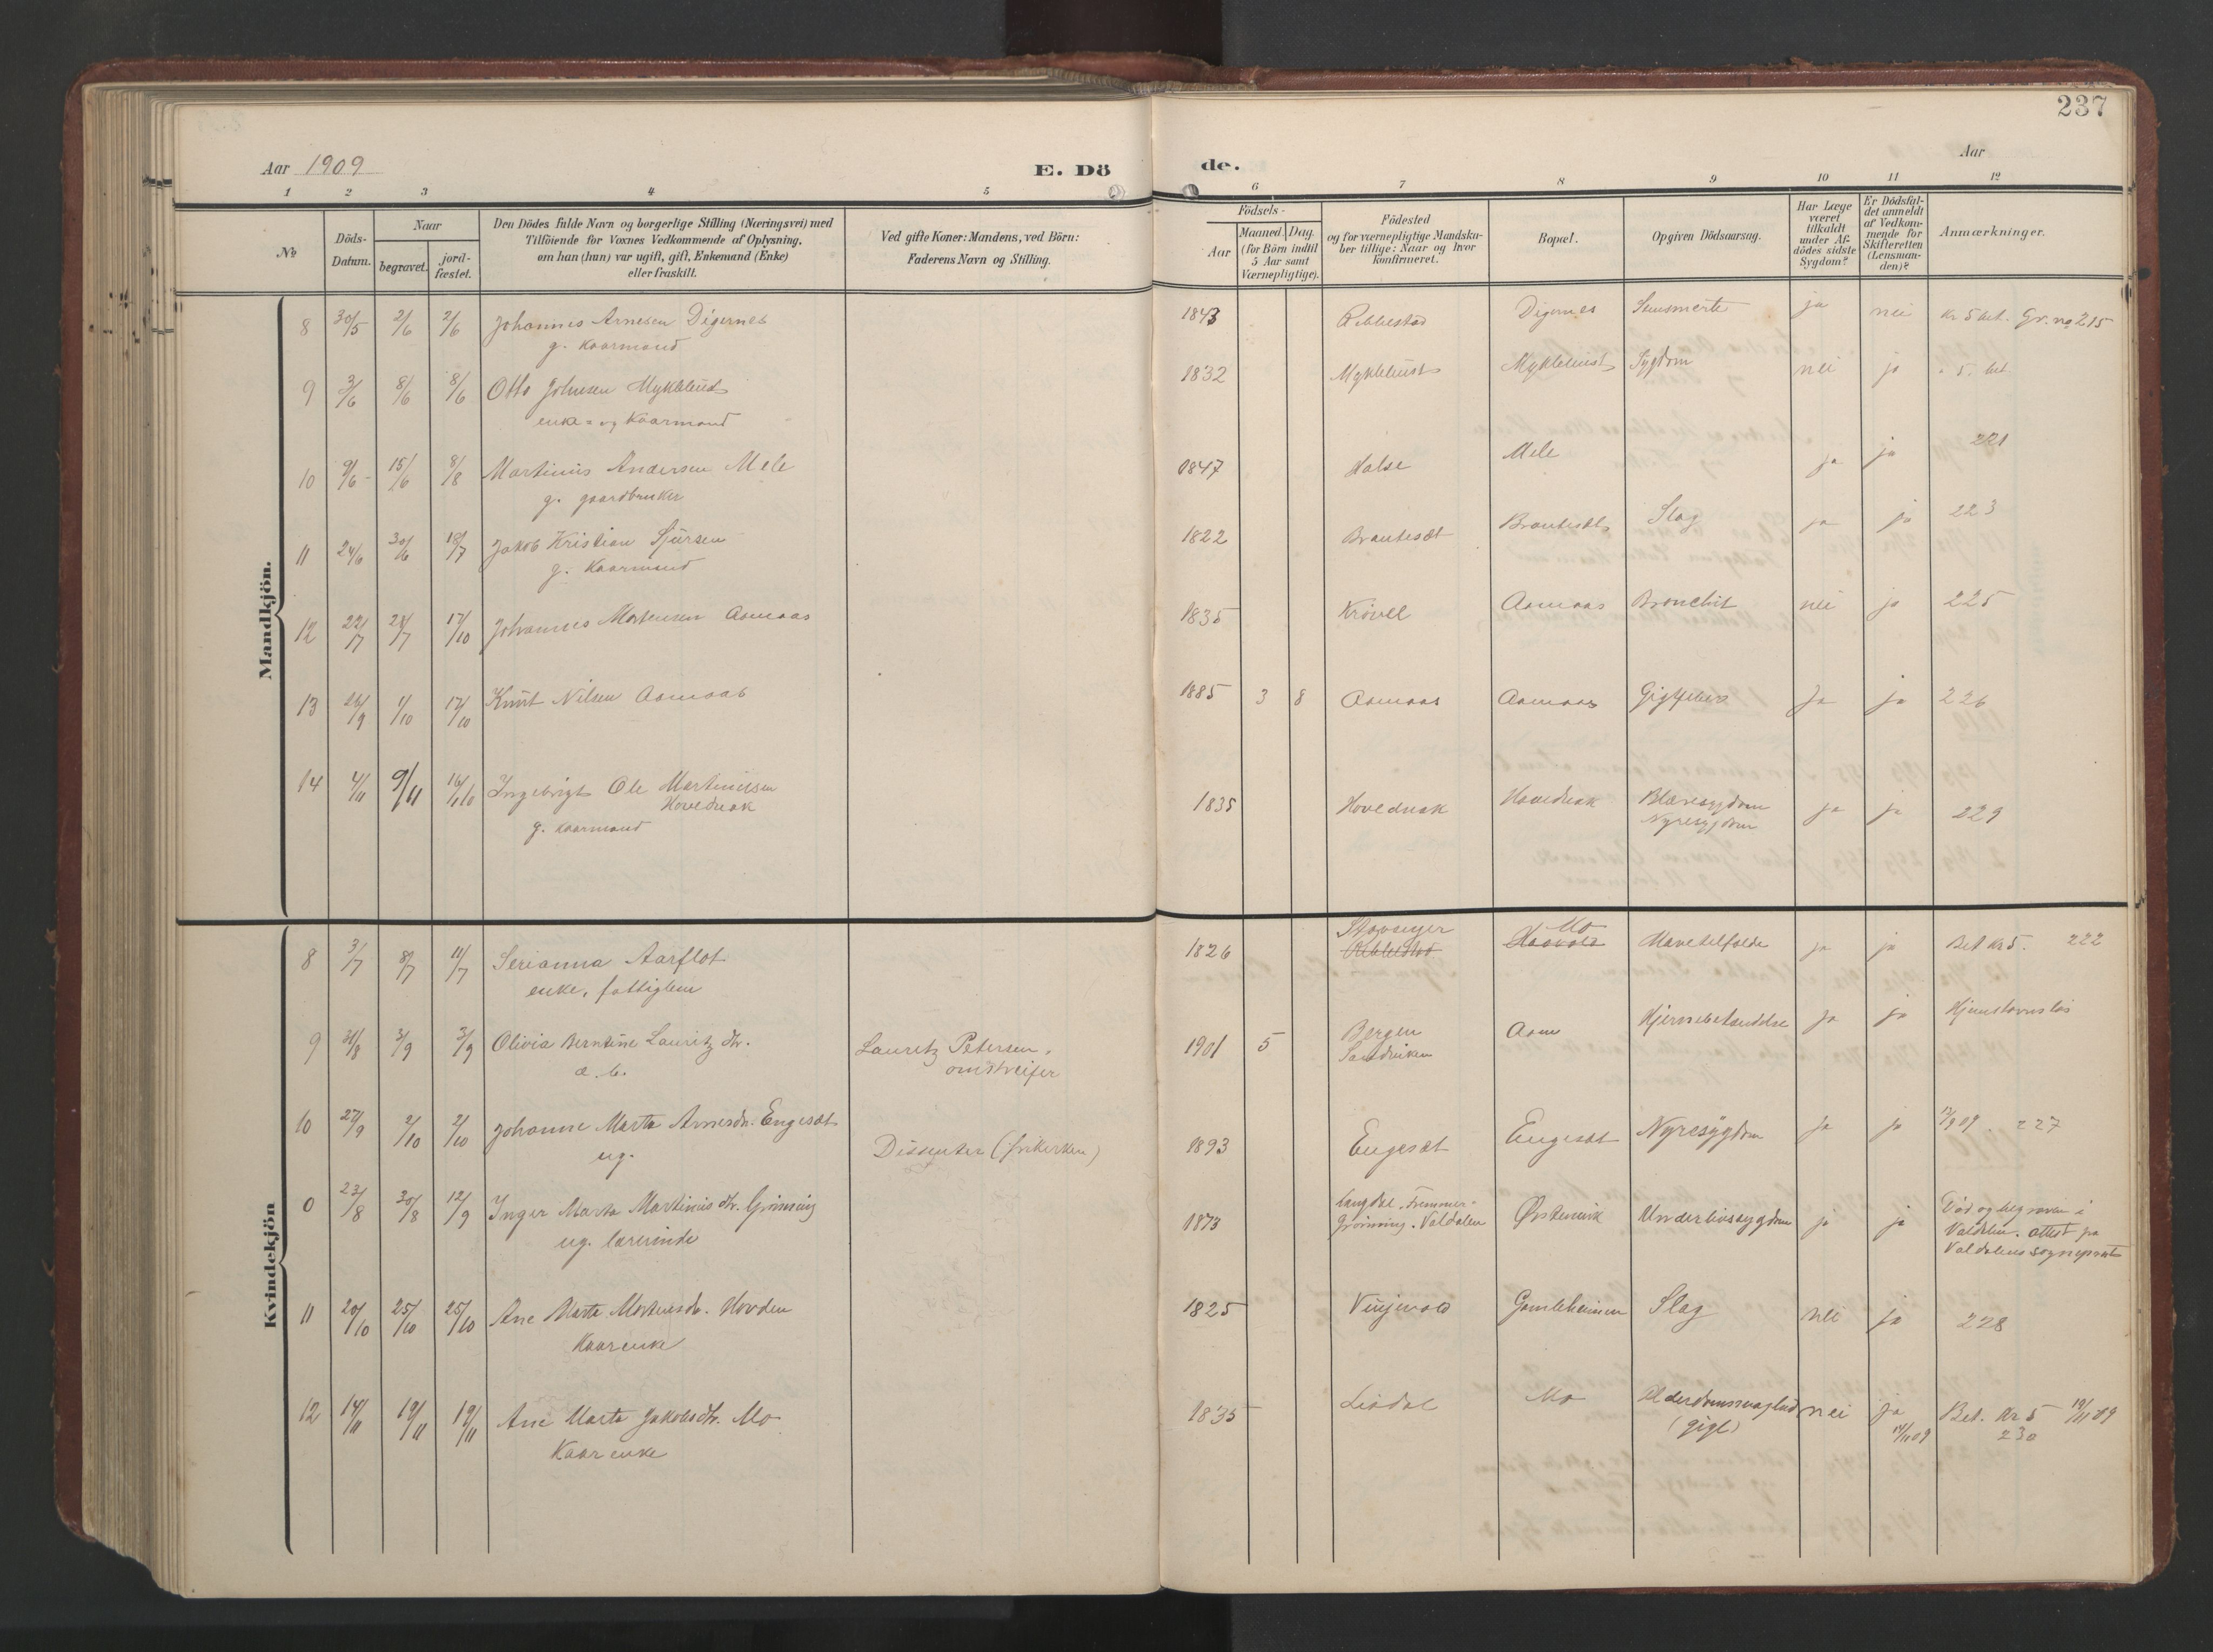 237
Aar 1909
E. Dö
de.
Aar
1 2 3 4 5 6 7 8 9 10 11 12
No
Döds-Datum.
Naar
begravet.
jord-fæstet.
Den Dödes fulde Navn og borgerlige Stilling (Næringsvei) med
Tilföiende for Voxnes Vedkommende af Oplysning,
om han (hun) var ugift, gift, Enkemand (Enke)
eller fraskilt.
Ved gifte Koner: Mandens, ved Börn:
Faderens Navn og Stilling.
Födsels-
Aar
Maaned. Dag.
(for Börn indtil
5 Aar samt
Værnepligtige).
Födested
og for værnepligtige Mandska-
ber tillige: Naar og hvor
konfirmeret.
Bopæl.
Opgiven Dödsaarsag.
Har Læge
været
tilkaldt
under Af-
dödes sidste
Sygdom?
Er Dödsfal-
det anmeldt
af Vedkom-
mende for
Skifteretten
(Lensman-
den)?
Anmærkninger.
Mandkjön.
8 30/5 2/6 2/6 Johannes Arnesen Digernes 1843 Ribbestad Digernes ja nei Kr 5 bet. Gr. no 215
g. Kaarmand
9 3/6 8/6 8/6 Otto Johnsen Myklebust 1832 Myklebust Myklebust Sygdom nei ja " 5. bet
enke- og Kaarmand
10 9/6 15/6 8/8 Martinus Andersen Mele 1847 Halse Mele ja ja 221
g. gaardbruker
11 24/6 30/6 18/7 Jakob Kristian Sjursen 1822 Brautesæt Brautesæt Slag ja ja 223
g. Kaarmand
12 22/7 28/7 17/10 Johannes Mortensen Aamaas 1835 Krövel Aamaas Bronchit nei ja 225
13 26/9 1/10 17/10 Knut Nilsen Aamaas 1885 3 8 Aamaas Aamaas Gigtfeber Ja ja 226
14 4/11 9/11 Ingebrigt Ole Martinusen 1835 Hovdenak Hovdenak Blæresygdom ja ja 229
Hovdenak Nyresygdom
g. kaarmand
Kvindekjön
8 3/7 8/7 11/7 Serianna Aarflot 1826 Mo ja ja Bet kr 5. 222
enke, fattiglem
9 31/8 3/9 3/9 Olivia Berntine Lauritz dtr. Lauretz Petersen, 1901 5 Bergen Aam Hjernebetændelse ja ja Hjemstavnslös
æ. b. omstreifer Sandviken
10 27/9 2/10 2/10 Johanne Marta Arnesdtr. Engesæt 1893 Engesæt Engesæt Nyresygdom ja ja 227
ug. Dissenter (frikirken)
0 23/8 30/8 12/9 Inger Marta Martinus dtr. Grönning 1873 Grönning. Valdalen Örstenvik Underlivssygdom ja ja Död og begraven i
ug. lærerinde Valdalen. attest fra
Valdalens sogneprest
11 20/10 25/10 25/10 Ane Marta Mortensdtr. Hovden 1825 Gamleheimen Slag nei ja 228
Kaarenke
12 14/11 19/11 19/11 Ane Marta Jakobsdtr. Mo 1835 Lisdal Mo Alderdomssvaghed nei ja Bet. Kr 5 19/11 09
Kaarenke (gigt) 230